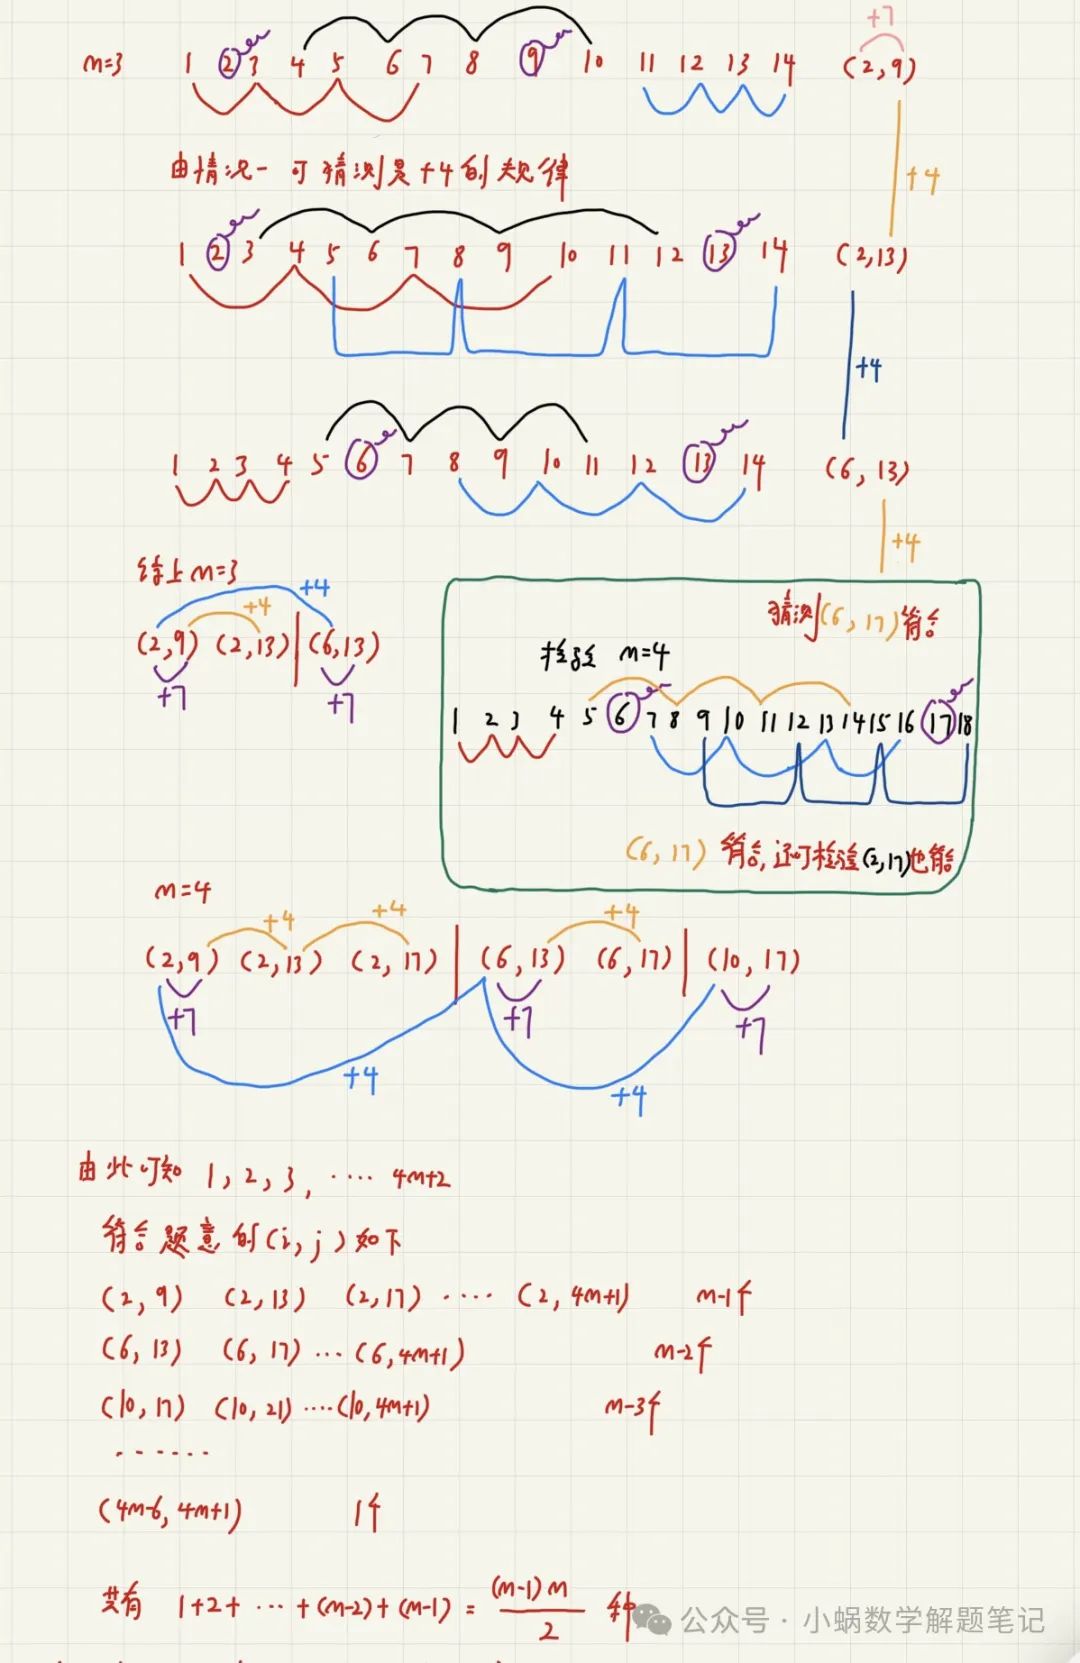 +7
m=3 1 2 3 4 5 6 7 8 9 10 11 12 13 14 (2,9)
由情况一可猜测是+4的规律 +4
1 2 3 4 5 6 7 8 9 10 11 12 13 14 (2,13)
+4
1 2 3 4 5 6 7 8 9 10 11 12 13 14 (6,13)
+4
综上m=3
+4
+4
(2,9) (2,13) (6,13)
+7 +7
猜测(6,17)符合
检验 m=4
1 2 3 4 5 6 7 8 9 10 11 12 13 14 15 16 17 18
(6,17)符合,还可检验(2,17)也符合
m=4
+4 +4 +4
(2,9) (2,13) (2,17) (6,13) (6,17) (10,17)
+7 +7 +7
+4 +4
由此可知 1,2,3,…… 4m+2
符合题意的(i,j)如下
(2,9) (2,13) (2,17) ···· (2,4m+1) m-1个
(6,13) (6,17) ··· (6,4m+1) m-2个
(10,17) (10,21) ····(10,4m+1) m-3个
······
(4m-6,4m+1) 1个
共有 1+2+ ··· +(m-2)+(m-1) = (m-1)m/2 种
公众号·小蜗数学解题笔记